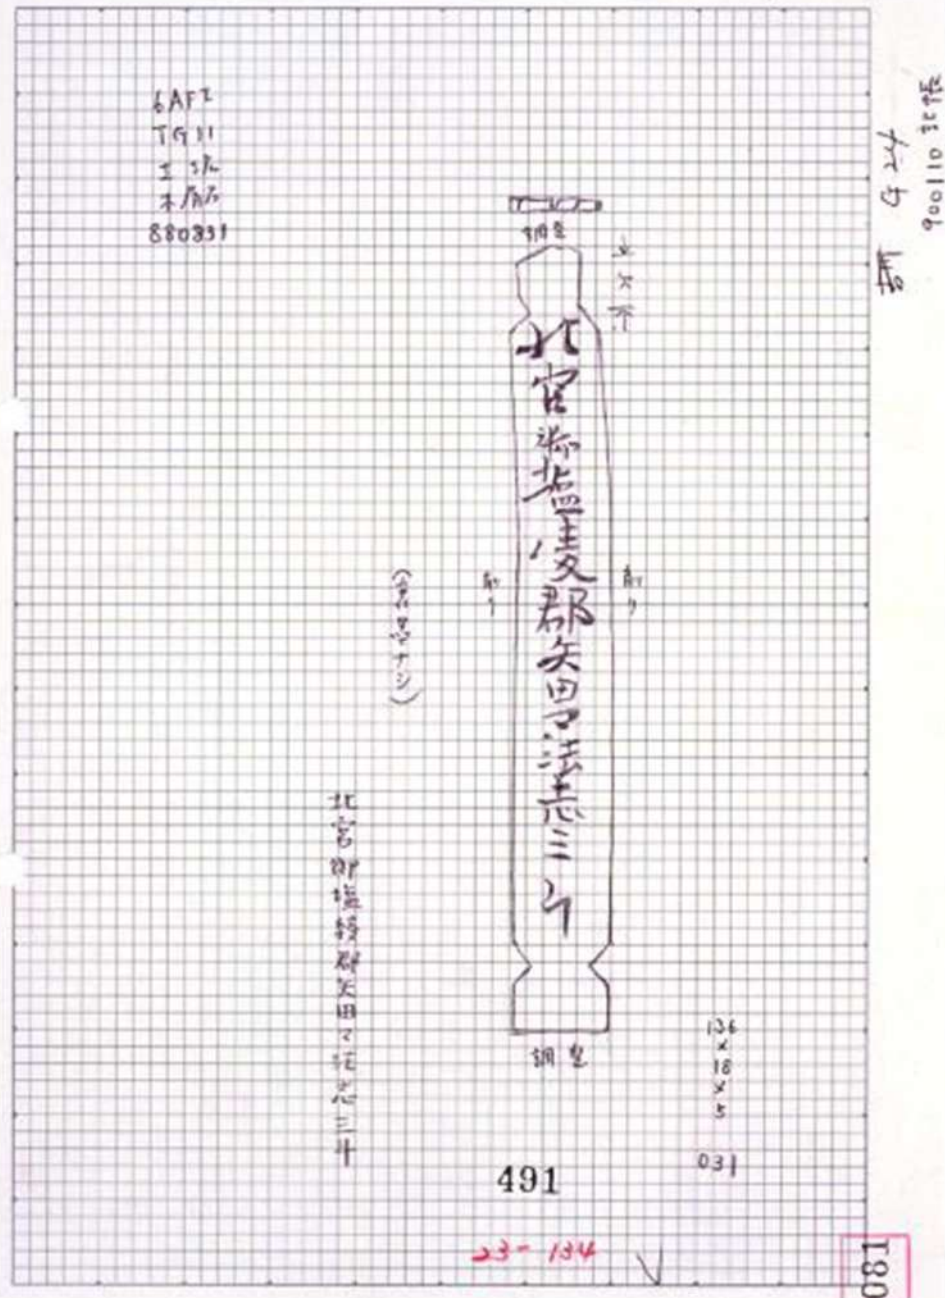 6AFI
TG11
土坑
木屑
880831
900110
調整
北宮御塩綾郡矢田マ法志三斗
削り
削り
(裏墨ナシ)
北宮御塩綾郡矢田マ法志三斗
調整
136×18×5
031
491
23-134
081